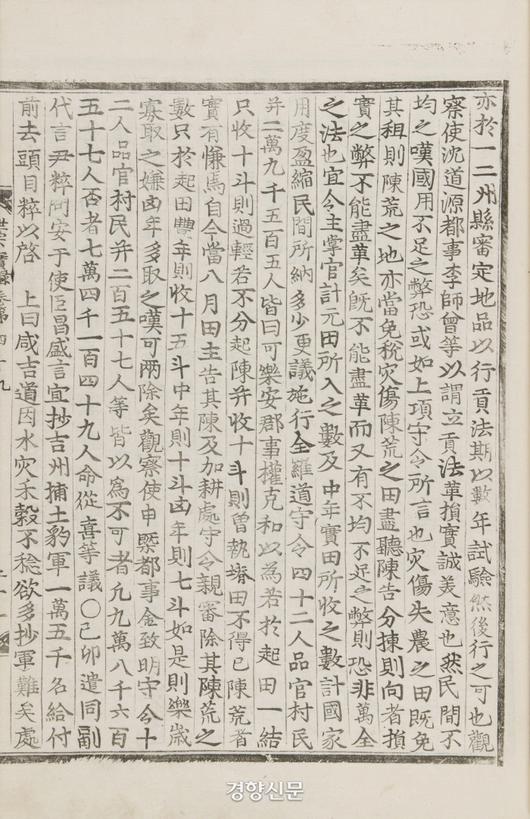 亦於一二州縣審定地品以行貢法期以數年試驗然後行之可也觀
察使沈道源都事李師曾等以謂立貢法革損實誠美意也然民間不
均之嘆國用不足之弊恐或如上項守令所言也灾傷失農之田既免
其租則陳荒之地亦當免稅灾傷陳荒之田盡聽陳告分揀則向者損
實之弊不能盡革矣旣不能盡革而又有不均不足之弊則恐非萬全
之法也宜令主掌官計元田所入之數及中年實田所收之數計國家
用度盈縮民間所納多少更議施行全羅道守令四十二人品官村民
幷二萬九千五百五人皆曰可樂安郡事權克和以為若於起田一結
只收十斗則過輕若不分起陳幷收十斗則曾執堉田不得已陳荒者
實有慊焉自今當八月田主告其陳及加耕處守令親審除其陳荒之
數只於起田豐年則收十五斗中年則十斗凶年則七斗如是則樂歲
寡取之嫌凶年多取之嘆可兩除矣觀察使申槩都事金致明守令十
二人品官村民幷二百五十七人等皆以爲不可者凡九萬八千六百
五十七人否者七萬四千一百四十九人命從喜等議○己卯遣同副
代言尹粹問安于使臣昌盛言宜抄吉州捕土豹軍一萬五千名給付
前去頭目粹以啓 上曰咸吉道因水灾禾穀不稔欲多抄軍難矣處
경향신문